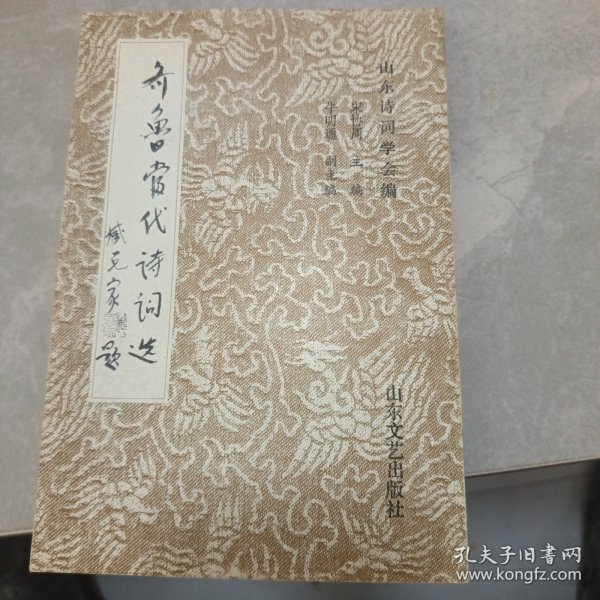 山东诗词学会编
主编
牛明通 副主编
齐鲁当代诗词选
臧克家
题
山东文艺出版社
孔夫子旧书网
www.kongfz.com